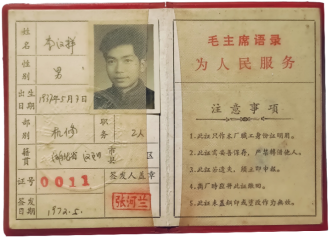 姓名
性别 男
出生日期
部别 职务 工人
籍贯 湖北省 市县 区
证号 0011 签发人盖章
张河兰
签发日期 1972.5.
毛主席语录
为人民服务
注意事项
1.此证只作本厂职工身份证明用。
2.此证应妥善保存，严禁转借他人。
3.此证若遗失，请立即申报。
4.离厂时将此证缴回。
5.此证未盖钢印或骑缝作为无效。